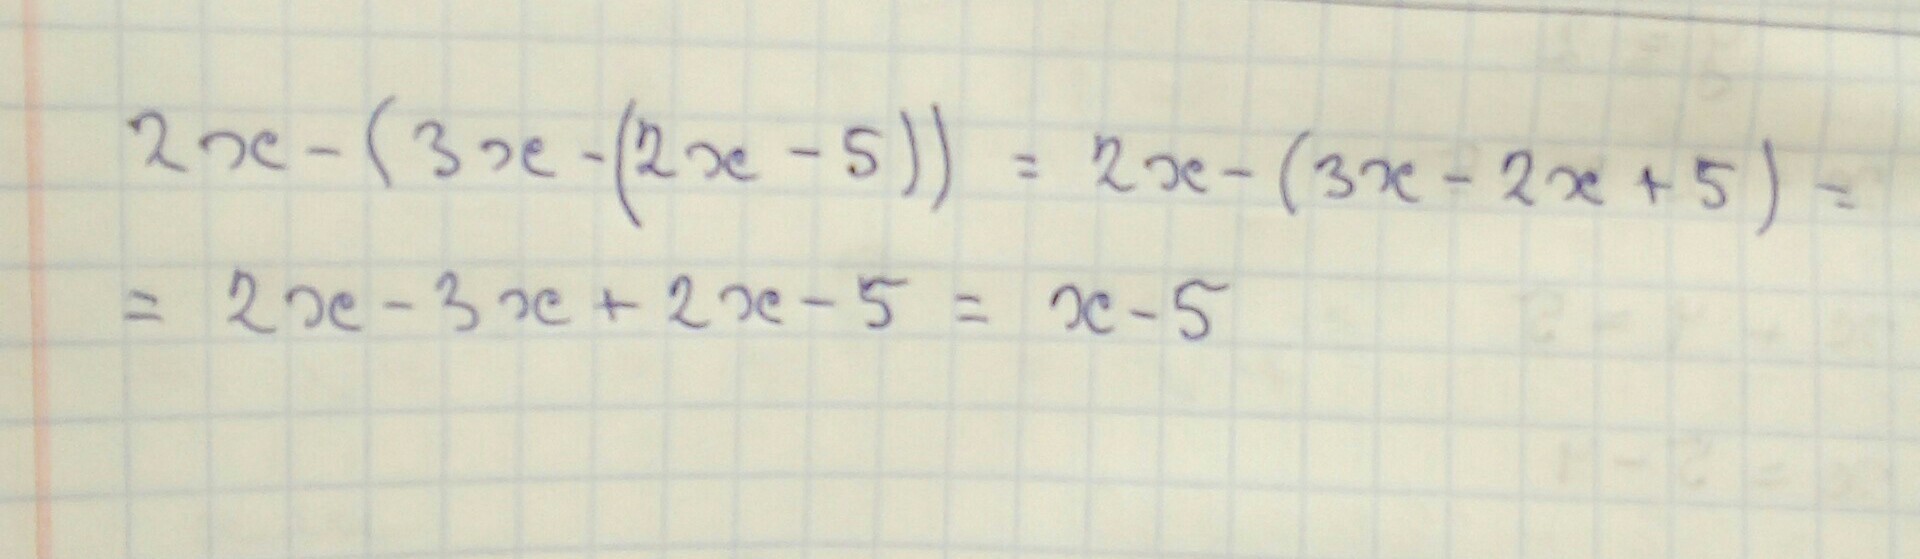 2x - (3x - (2x - 5)) = 2x - (3x - 2x + 5) =
= 2x - 3x + 2x - 5 = x - 5